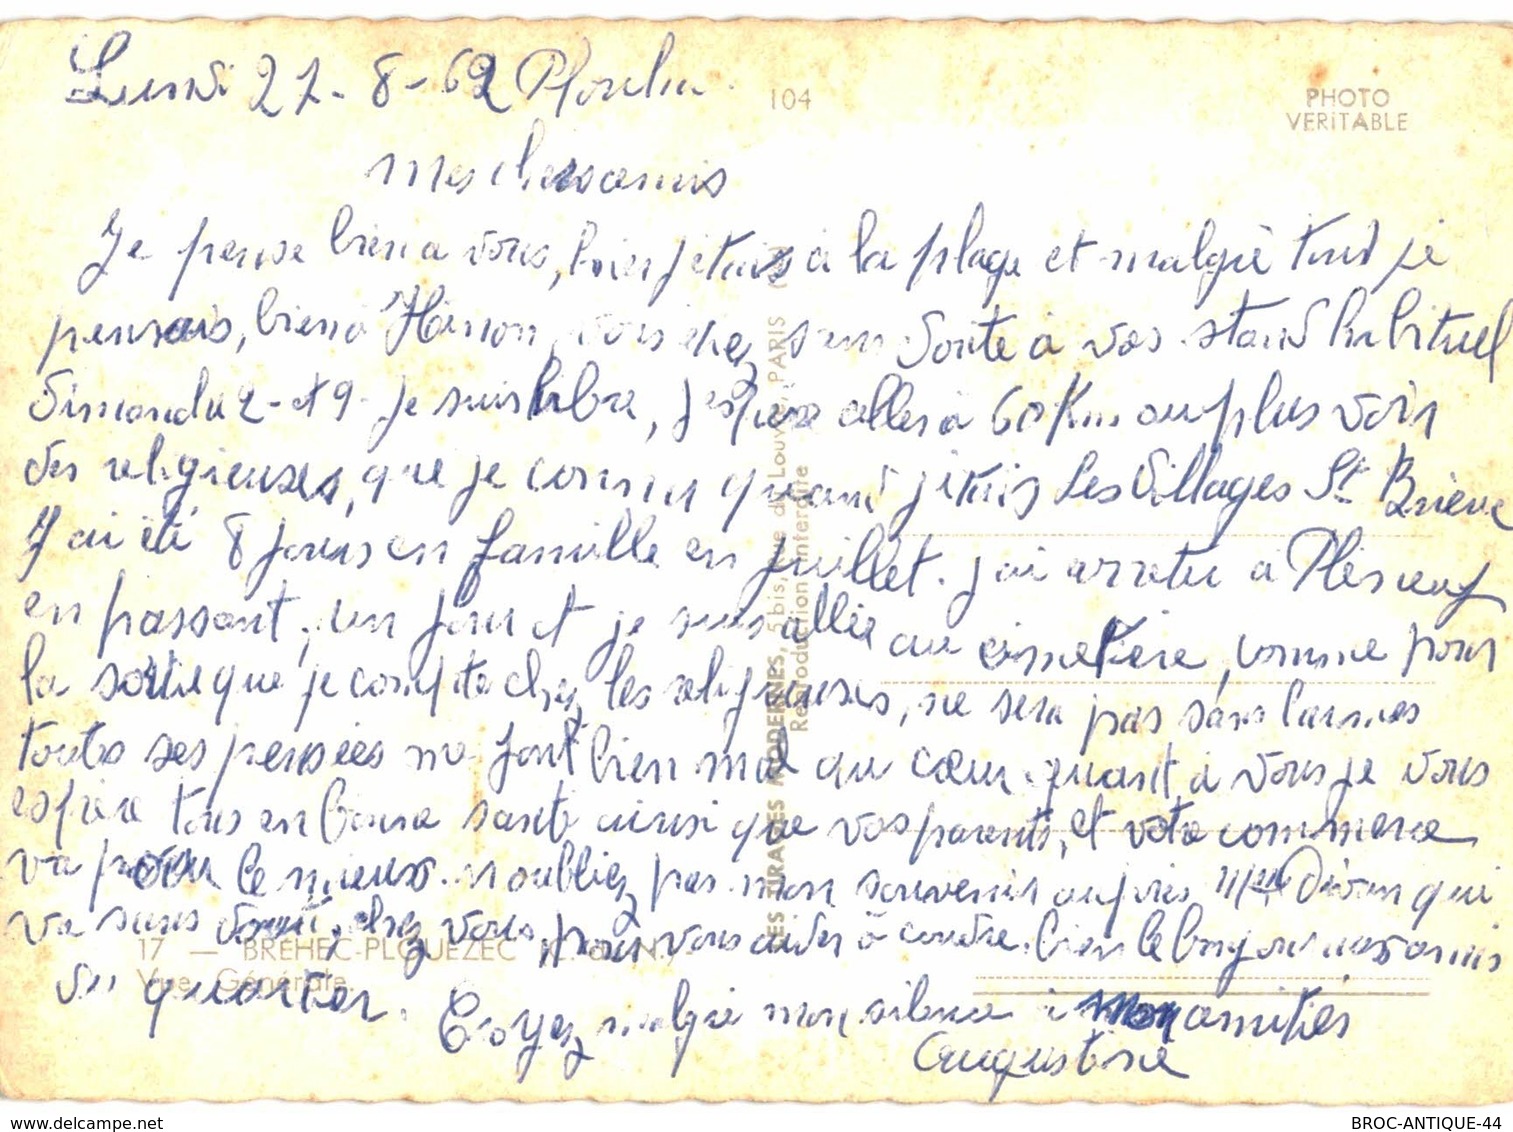 Lundi 27-8-62
104
PHOTO
VERITABLE
Mes chers amis
Je pense bien a vous, hier j'etais à la plage et malgrè tout je
pensais, bien à Hénon, vous etiez sans doute à vos stand habituel
Dimanche 2 et 9. je suis libre, j'espère aller à 60 Km ou plus voir
des religieuses, que je connu quand j'etais Les Villages St Brieuc
J'ai été 8 jours en famille en Juillet. j'ai arreter à Pléneuf
en passant, un jour et je suis allée au cimetière, comme pour
la sortie que je compte chez les religieuses, ne sera pas sans larmes
toutes ses pensées me font bien mal au cœur. quant à vous je vous
espère tous en bonne santé ainsi que vos parents, et votre commerce
va pour le mieux. n'oubliez pas mon souvenir auprès Mme qui
va sans doute, chez vous pour vous aider à coudre. bien le bonjour aux amis
du quartier.
Croyez malgré mon silence à mon amitiés
Augustine
LES TIRAGES MODERNES, 5 bis, rue du Louvre, PARIS
Reproduction interdite
17 — BRÉHEC-PLOUÉZEC
Vue Générale.
delcampe.net
BROC-ANTIQUE-44